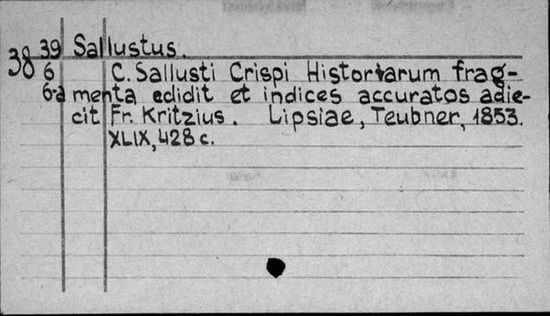 38 39 Sallustus.
6 C. Sallusti Crispi Historiarum frag-
6-a menta edidit et indices accuratos adie-
cit Fr. Kritzius. Lipsiae, Teubner, 1853.
XLIX, 428 c.